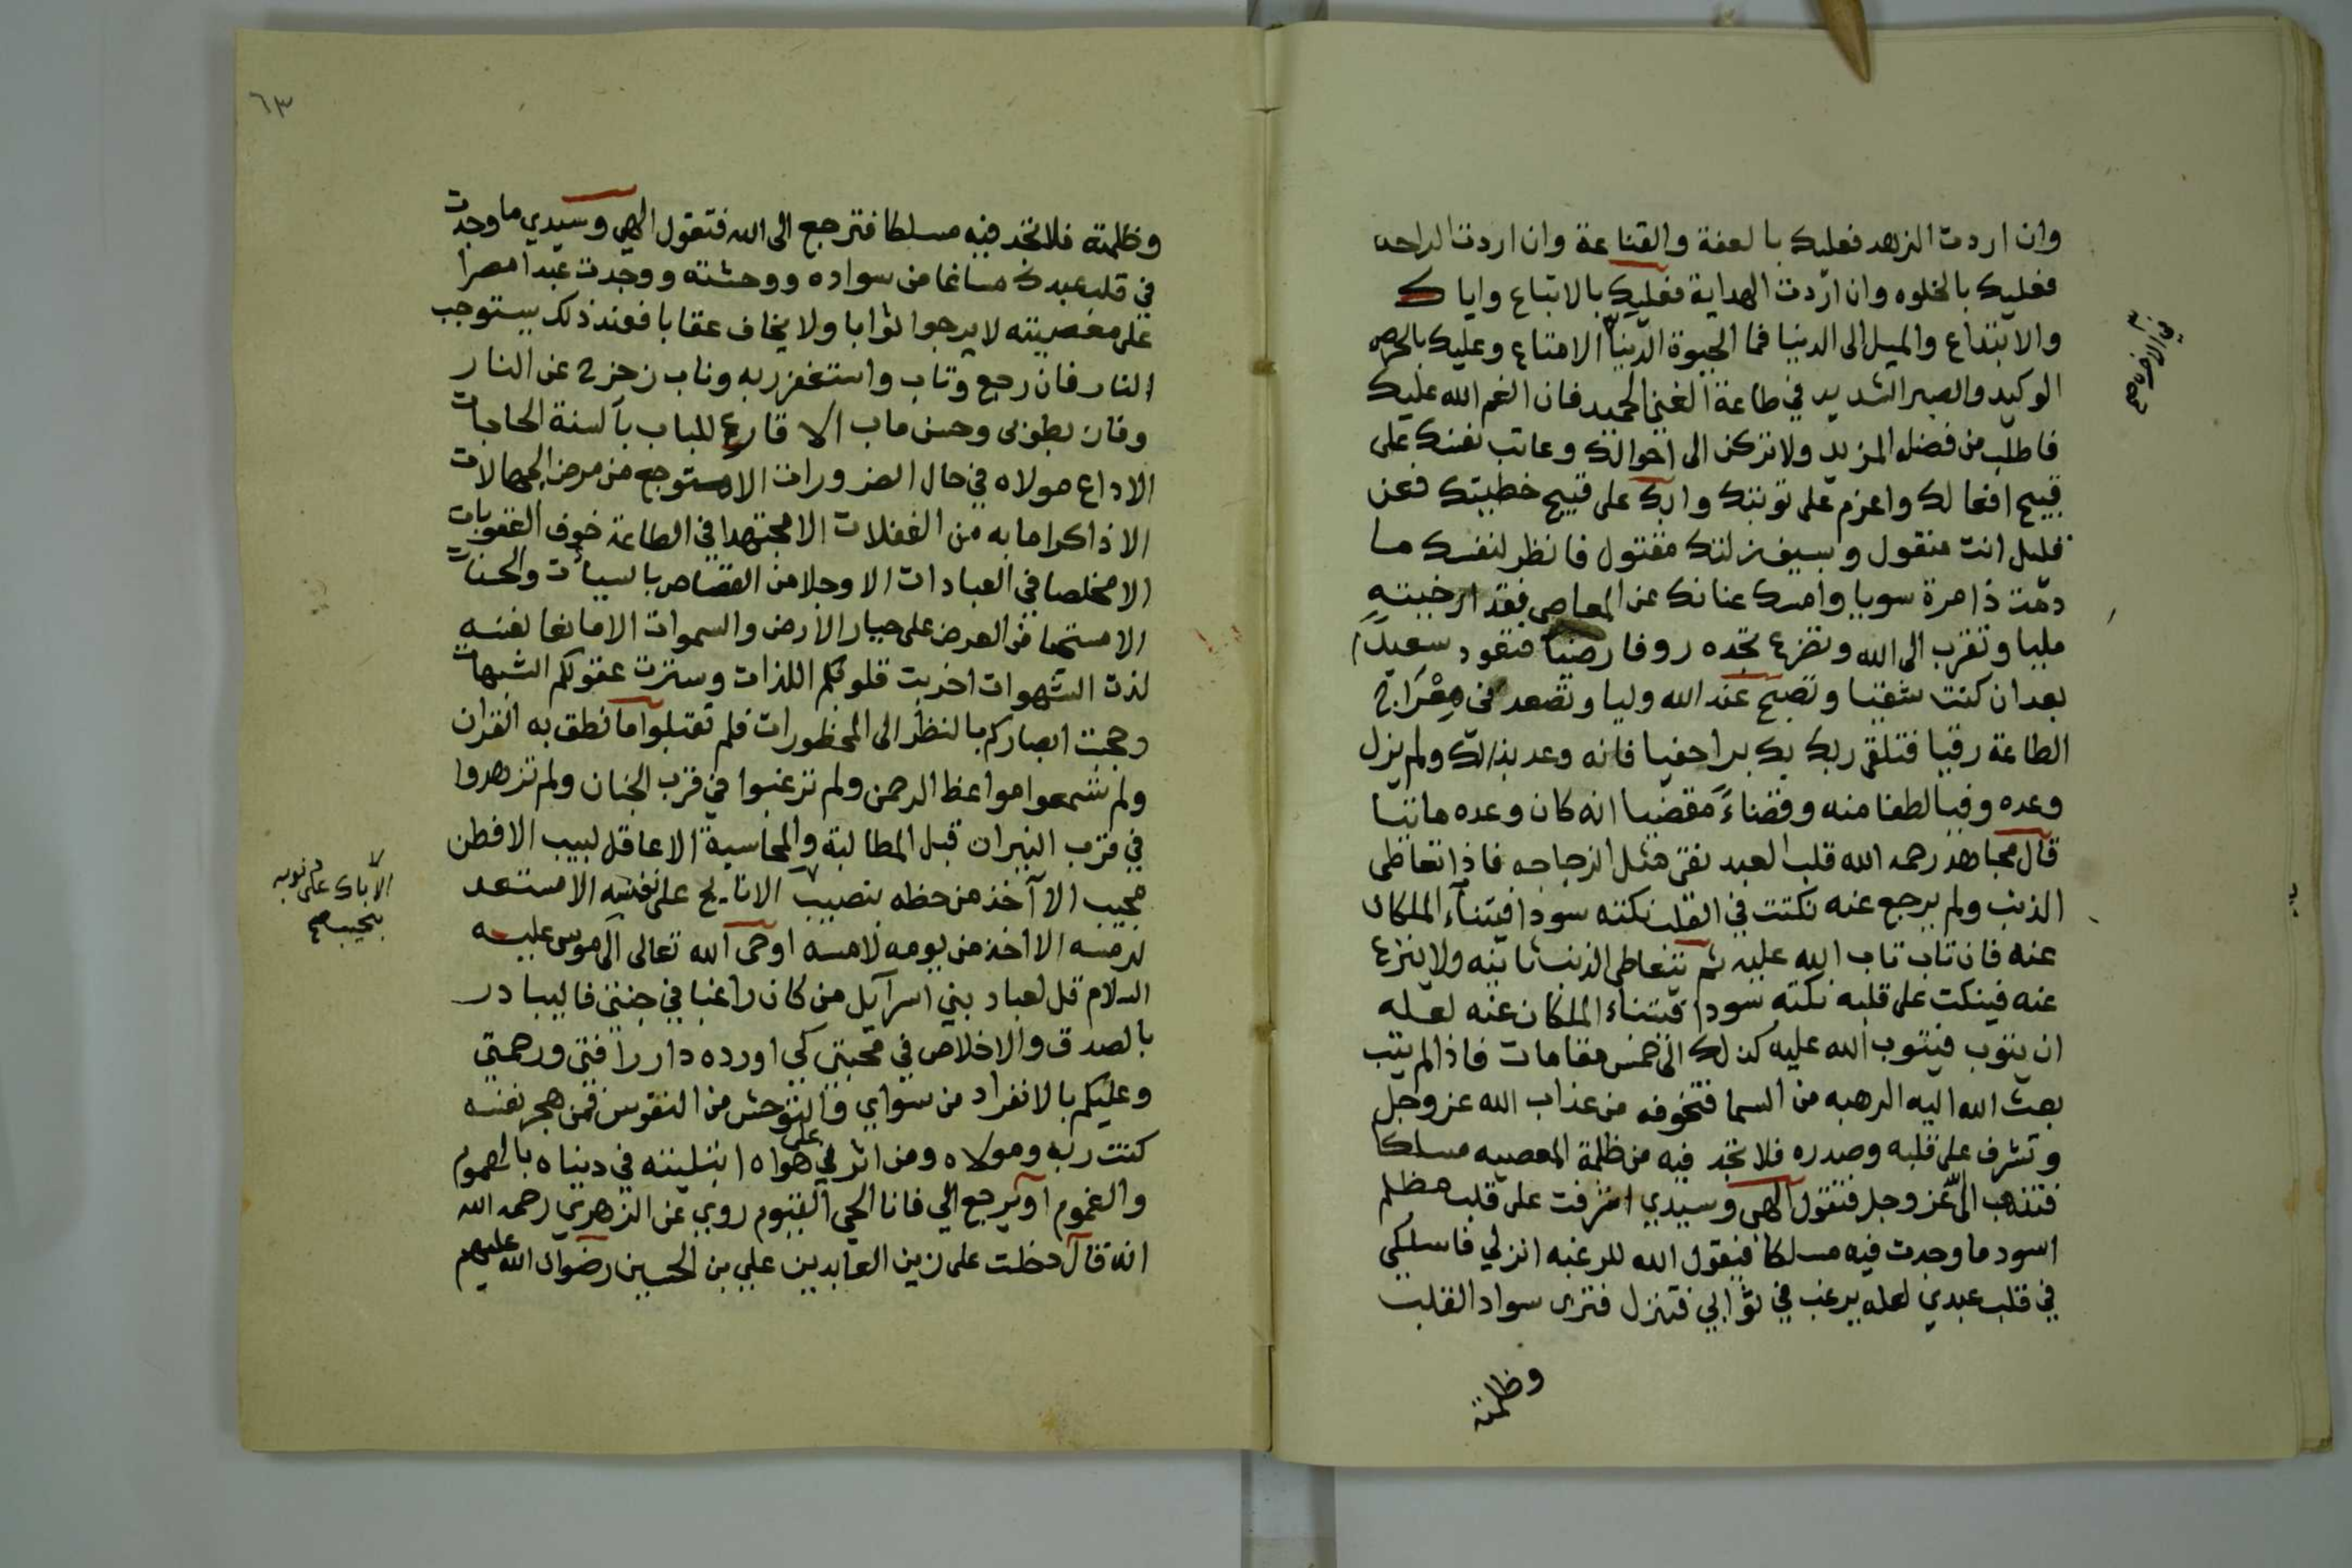 وان اردت الزهد فعليك بالعفة والقناعة وان اردت الراحه
فعليك بالخلوه وان اردت الهداية فعليك بالاتباع واياك
والابتداع والميل الى الدنيا فما الحيوة الدنيا الامتاع وعليك بالحرص
في الاخرة صح
الوكيد والصبر الشديد في طاعة الغني الحميد فان انعم الله عليك
فاطلب من فضله المزيد ولا تركن الى احوالك وعاتب نفسك على
قبيح افعالك واعزم على توبتك وابك على قبيح خطيتك فعن
قليل انت منقول وبسيف زلتك مقتول فانظر لنفسك ما
دمت ذا مرة سويا وامسك عنانك عن المعاصي فقد ارخيته
مليا وتقرب الى الله وتضرع تجده روفا رضيا فتعود سعيدا
بعد ان كنت شقيا وتصبح عند الله وليا وتصعد في معراج
الطاعة رقيا فتلقى ربك بك برا حفيا فانه وعد بذلك ولم يزل
وعده وفيا لطفا منه وقضاء مقضيا انه كان وعده ماتيا
قال مجاهد رحمه الله قلب العبد نقي مثل الزجاجه فاذا تعاطى
الذنب ولم يرجع عنه نكتت في القلب نكته سودا فيتناء الملكان
عنه فان تاب تاب الله عليه ثم يتعاطى الذنب ثانيه ولا ينزع
عنه فينكت على قلبه نكته سودا فيتناء الملكان عنه لعله
ان يتوب فيتوب الله عليه كذلك الى خمس مقامات فاذا لم يتب
بعث الله اليه الرهبه من السما فتخوفه من عذاب الله عز وجل
وتشرف على قلبه وصدره فلا تجد فيه من ظلمة المعصيه مسلكا
فتذهب الى عز وجل فتقول الهي وسيدي اشرفت على قلب مظلم
اسود ما وجدت فيه مسلكا فيقول الله للرغبه انزلي فاسلكي
في قلب عبدي لعله يرغب في ثوابي فتنزل فترى سواد القلب
وظلمته
٦٣
وظلمته فلا تجد فيه مسلكا فترجع الى الله فتقول الهي وسيدي ما وجدت
في قلب عبدك مساغا من سواده ووحشته ووجدت عبدا مصرا
على معصيته لا يرجوا ثوابا ولا يخاف عقابا فعند ذلك يستوجب
النار فان رجع وتاب واستغفر ربه وناب زحزح عن النار
وفاز بطوبى وحسن ماب الا قارع للباب بالسنة الحاجات
الا داع مولاه في حال الضرورات الا متوجع من مرض الجهالات
الا ذاكرا ما به من الغفلات الا مجتهدا في الطاعة خوف العقوبات
الا مخلصا في العبادات الا وجلا من القصاص بالسيات والحسنات
الا مستحيا من العرض على جبار الارض والسموات الا مانعا نفسه
لذت الشهوات اخربت قلوبكم اللذات وسترت عقولكم الشبهات
وحجبت ابصاركم بالنظر الى المحظورات فلم تقبلوا ما نطق به القران
ولم تسمعوا مواعظ الرحمن ولم ترغبوا في قرب الجنان ولم تزهدوا
في قرب النيران قبل المطالبة والمحاسبة الا عاقل لبيب الا فطن
مجيب الا آخذ من حظه بنصيب الا نايح على نفسه الا مستعد
الا باك على ذنوبه بنحيب صح
لرمسه الا اخذ من يومه لامسه اوحى الله تعالى الى موسى عليه
السلام قل لعباد بني اسرآيل من كان راغبا في جنتي فاليبادر
بالصدق والاخلاص في محبتي كي اورده دار رافتي ورحمتي
وعليكم بالانفراد من سواي والتوحش من النفوس فمن هجر نفسه
كنت ربه ومولاه ومن اثر علي هواه ابتليته في دنياه بالهموم
والغموم او يرجع الي فانا الحي القيوم روي عن الزهري رحمه الله
انه قال دخلت على زين العابدين علي بن الحسين رضوان الله عليهم